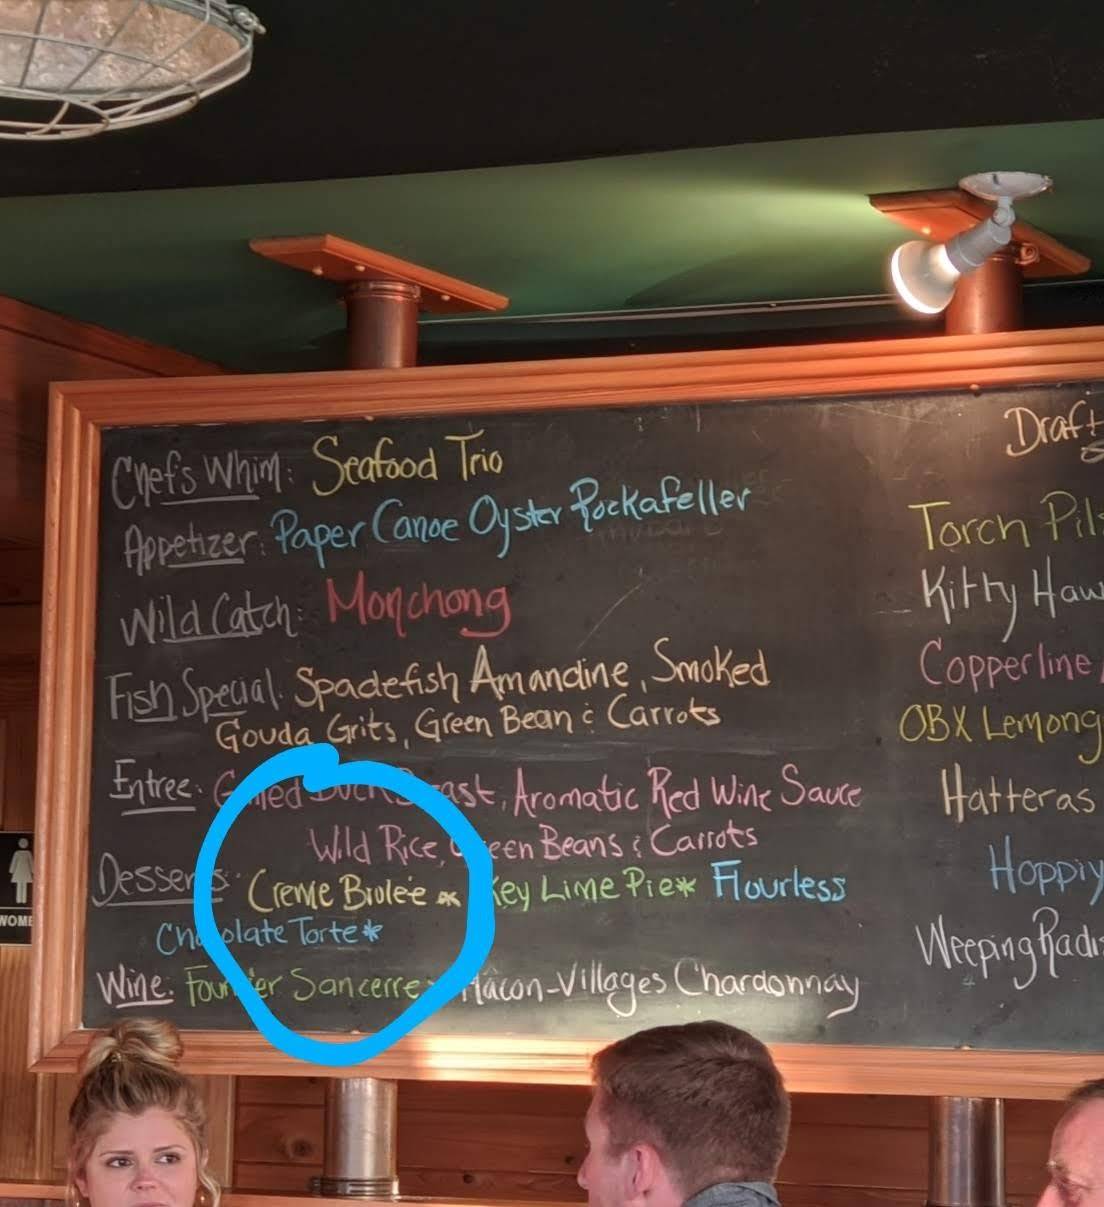 Chef's Whim: Seafood Trio
Appetizer: Paper Canoe Oyster Rockafeller
Wild Catch: Monchong
Fish Special: Spadefish Amandine, Smoked
Gouda Grits, Green Bean & Carrots
Entree: Duck Breast, Aromatic Red Wine Sauce
Wild Rice, Green Beans & Carrots
Desserts: Creme Brulée * Key Lime Pie* Flourless
Chocolate Torte*
Wine: Fournier Sancerre Mâcon-Villages Chardonnay
Draft
Torch Pils
Kitty Haw
Copperline
OBX Lemong
Hatteras
Hoppiy
Weeping Radis
WOME